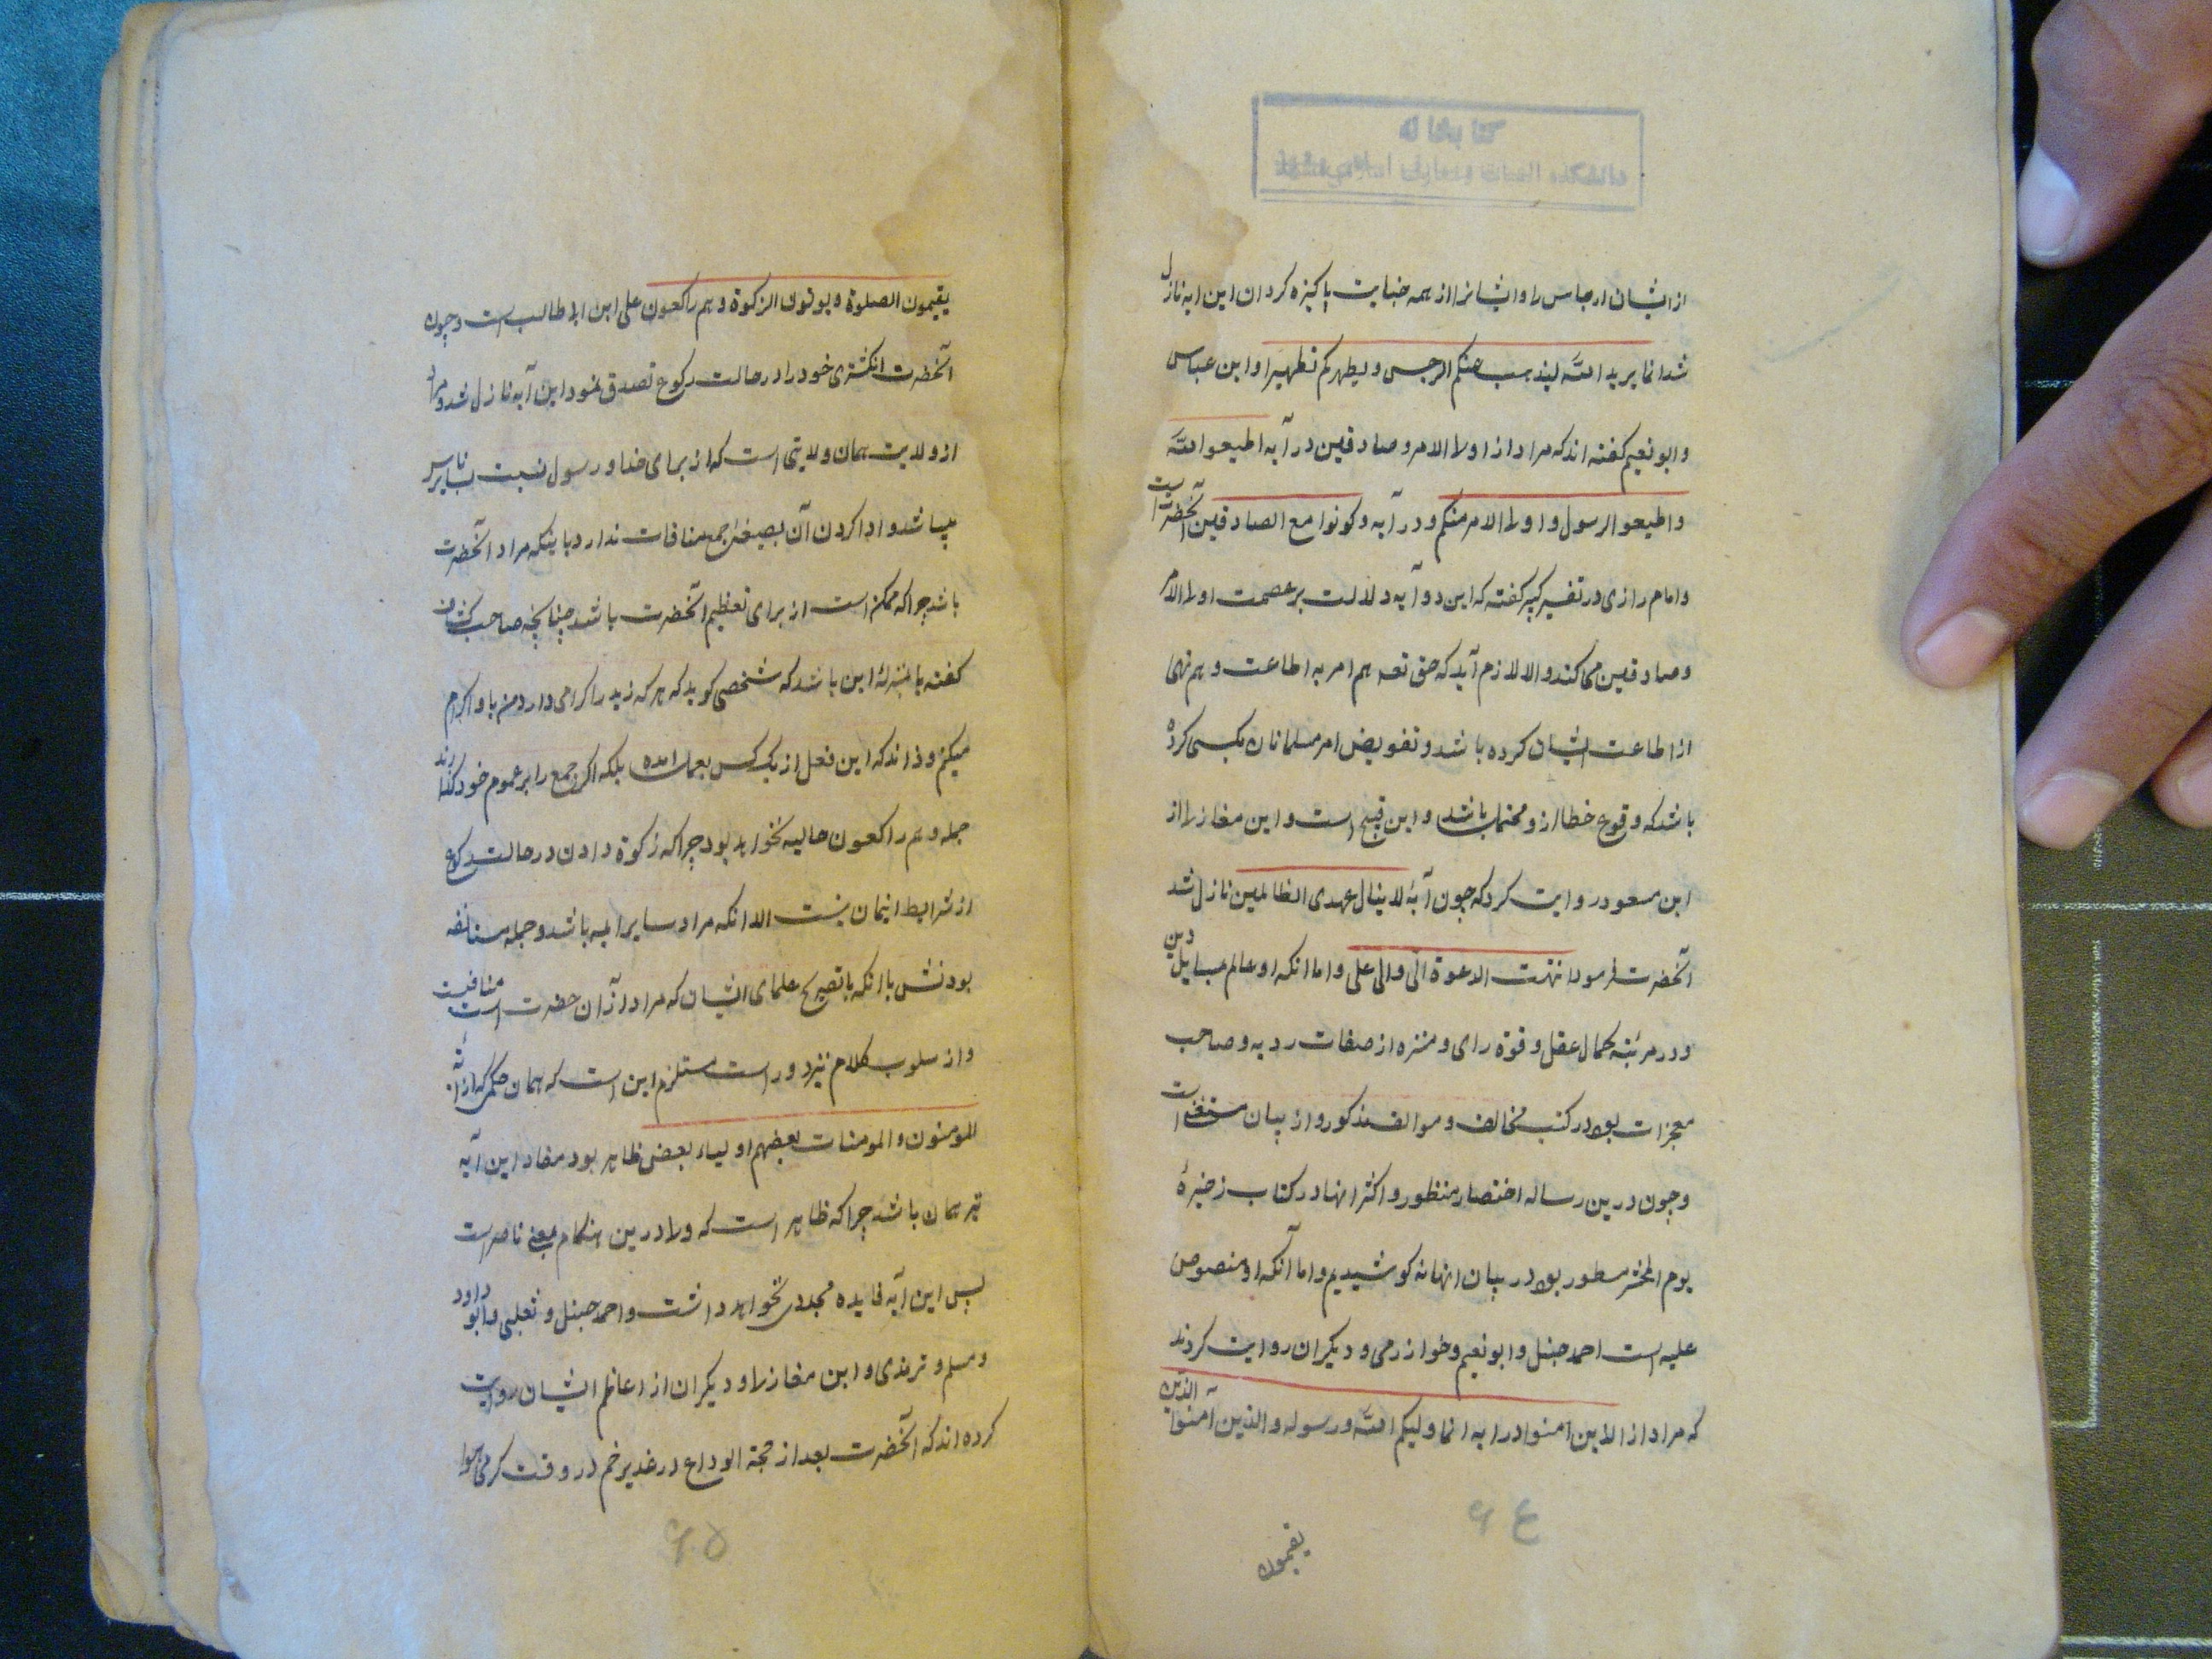 کتابخانه
از ایشان ارجاس را و ایشانرا از همه خبایت پاکیزه کردان این ایه نازل
شد انما یرید الله لیذهب عنکم الرجس و یطهرکم تطهیرا و ابن عباس
و ابو نعیم کفته اند که مراد از اولی الامر و صادقین در آیه اطیعوا الله
و اطیعو الرسول و اولی الامر منکم و در آیه و کونوا مع الصادقین آنحضرت است
و امام رازی در تفسیر کبیر کفته که این دو آیه دلالت بر عصمت اولی الامر
و صادقین می کند و الا لازم آید که حق تعه هم امر به اطاعت و هم نهی
از اطاعت ایشان کرده باشد و تفویض امر مسلمانان بکسی کرده
باشد که وقوع خطا از و محتمل باشد و این قبیح است و ابن مغازلی از
ابن مسعود روایت کرد که چون آیهٔ لا ینال عهدی الظالمین نازل شد
آنحضرت فرمود انتهت الدعوة الی و الی علی و اما انکه او عالم بمسایل دین
و در مرتبه کمال عقل و قوة رای و منزه از صفات ردیه و صاحب
معجزات بود در کتب مخالف و موالف مذکور و از بیان مستغنی است
و چون درین رساله اختصار منظور و اکثر انها در کتاب ذخیرهٔ
یوم المحشر مسطور بود در بیان انها نه کوشیدیم و اما آنکه او منصوص
علیه است احمد حنبل و ابو نعیم و خوارزمی و دیکران روایت کردند
که مراد از الذین آمنوا در ایه انما ولیکم الله و رسوله و الذین آمنوا الذین
یقیمون
۶۴
یقیمون الصلوة و یوتون الزکوة و هم راکعون علی ابن ابی طالب است و چون
آنحضرت انکشتری خود را در حالت رکوع تصدق نمود این آیه نازل شد و مراد
از ولایت همان ولایتی است که از برای خدا و رسول نسبت بسایر ناس
میباشد و ادا کردن آن بصیغهٔ جمع منافات ندارد باینکه مراد آنحضرت
باشد چرا که ممکن است از برای تعظیم آنحضرت باشد چنانچه صاحب کشاف
کفته یا بمنزلهٔ این باشد که شخصی کوید که هر که زید را کرامی دارد من باو اکرام
میکنم و داند که این فعل از یک کس بعمل امده بلکه اکر جمع را بر عموم خود کذارند
جمله و هم راکعون حالیه نخواهد بود چرا که زکوة دادن در حالت رکوع
از شرایط ایمان نیست الا انکه مراد سایر ایمه باشد و جمله مستانفه
بودنش با انکه با تصریح علمای ایشان که مراد از آن حضرت است منافیست
و از سلوب کلام نیز دور است مستلزم این است که همان حکمی که از ایه
المومنون و المومنات بعضهم اولیاء بعض ظاهر بود مفاد این آیه
نیز همان باشد چرا که ظاهر است که ولی درین هنکام بمعنی ناصر است
پس این آیه فایده مجددی نخواهد داشت و احمد حنبل و ثعلبی و ابو داود
و مسلم و ترمذی و ابن مغازلی و دیکران از اعاظم ایشان روایت
کرده اند که آنحضرت بعد از حجة الوداع در غدیر خم در وقت کرمی هوا
۶۵